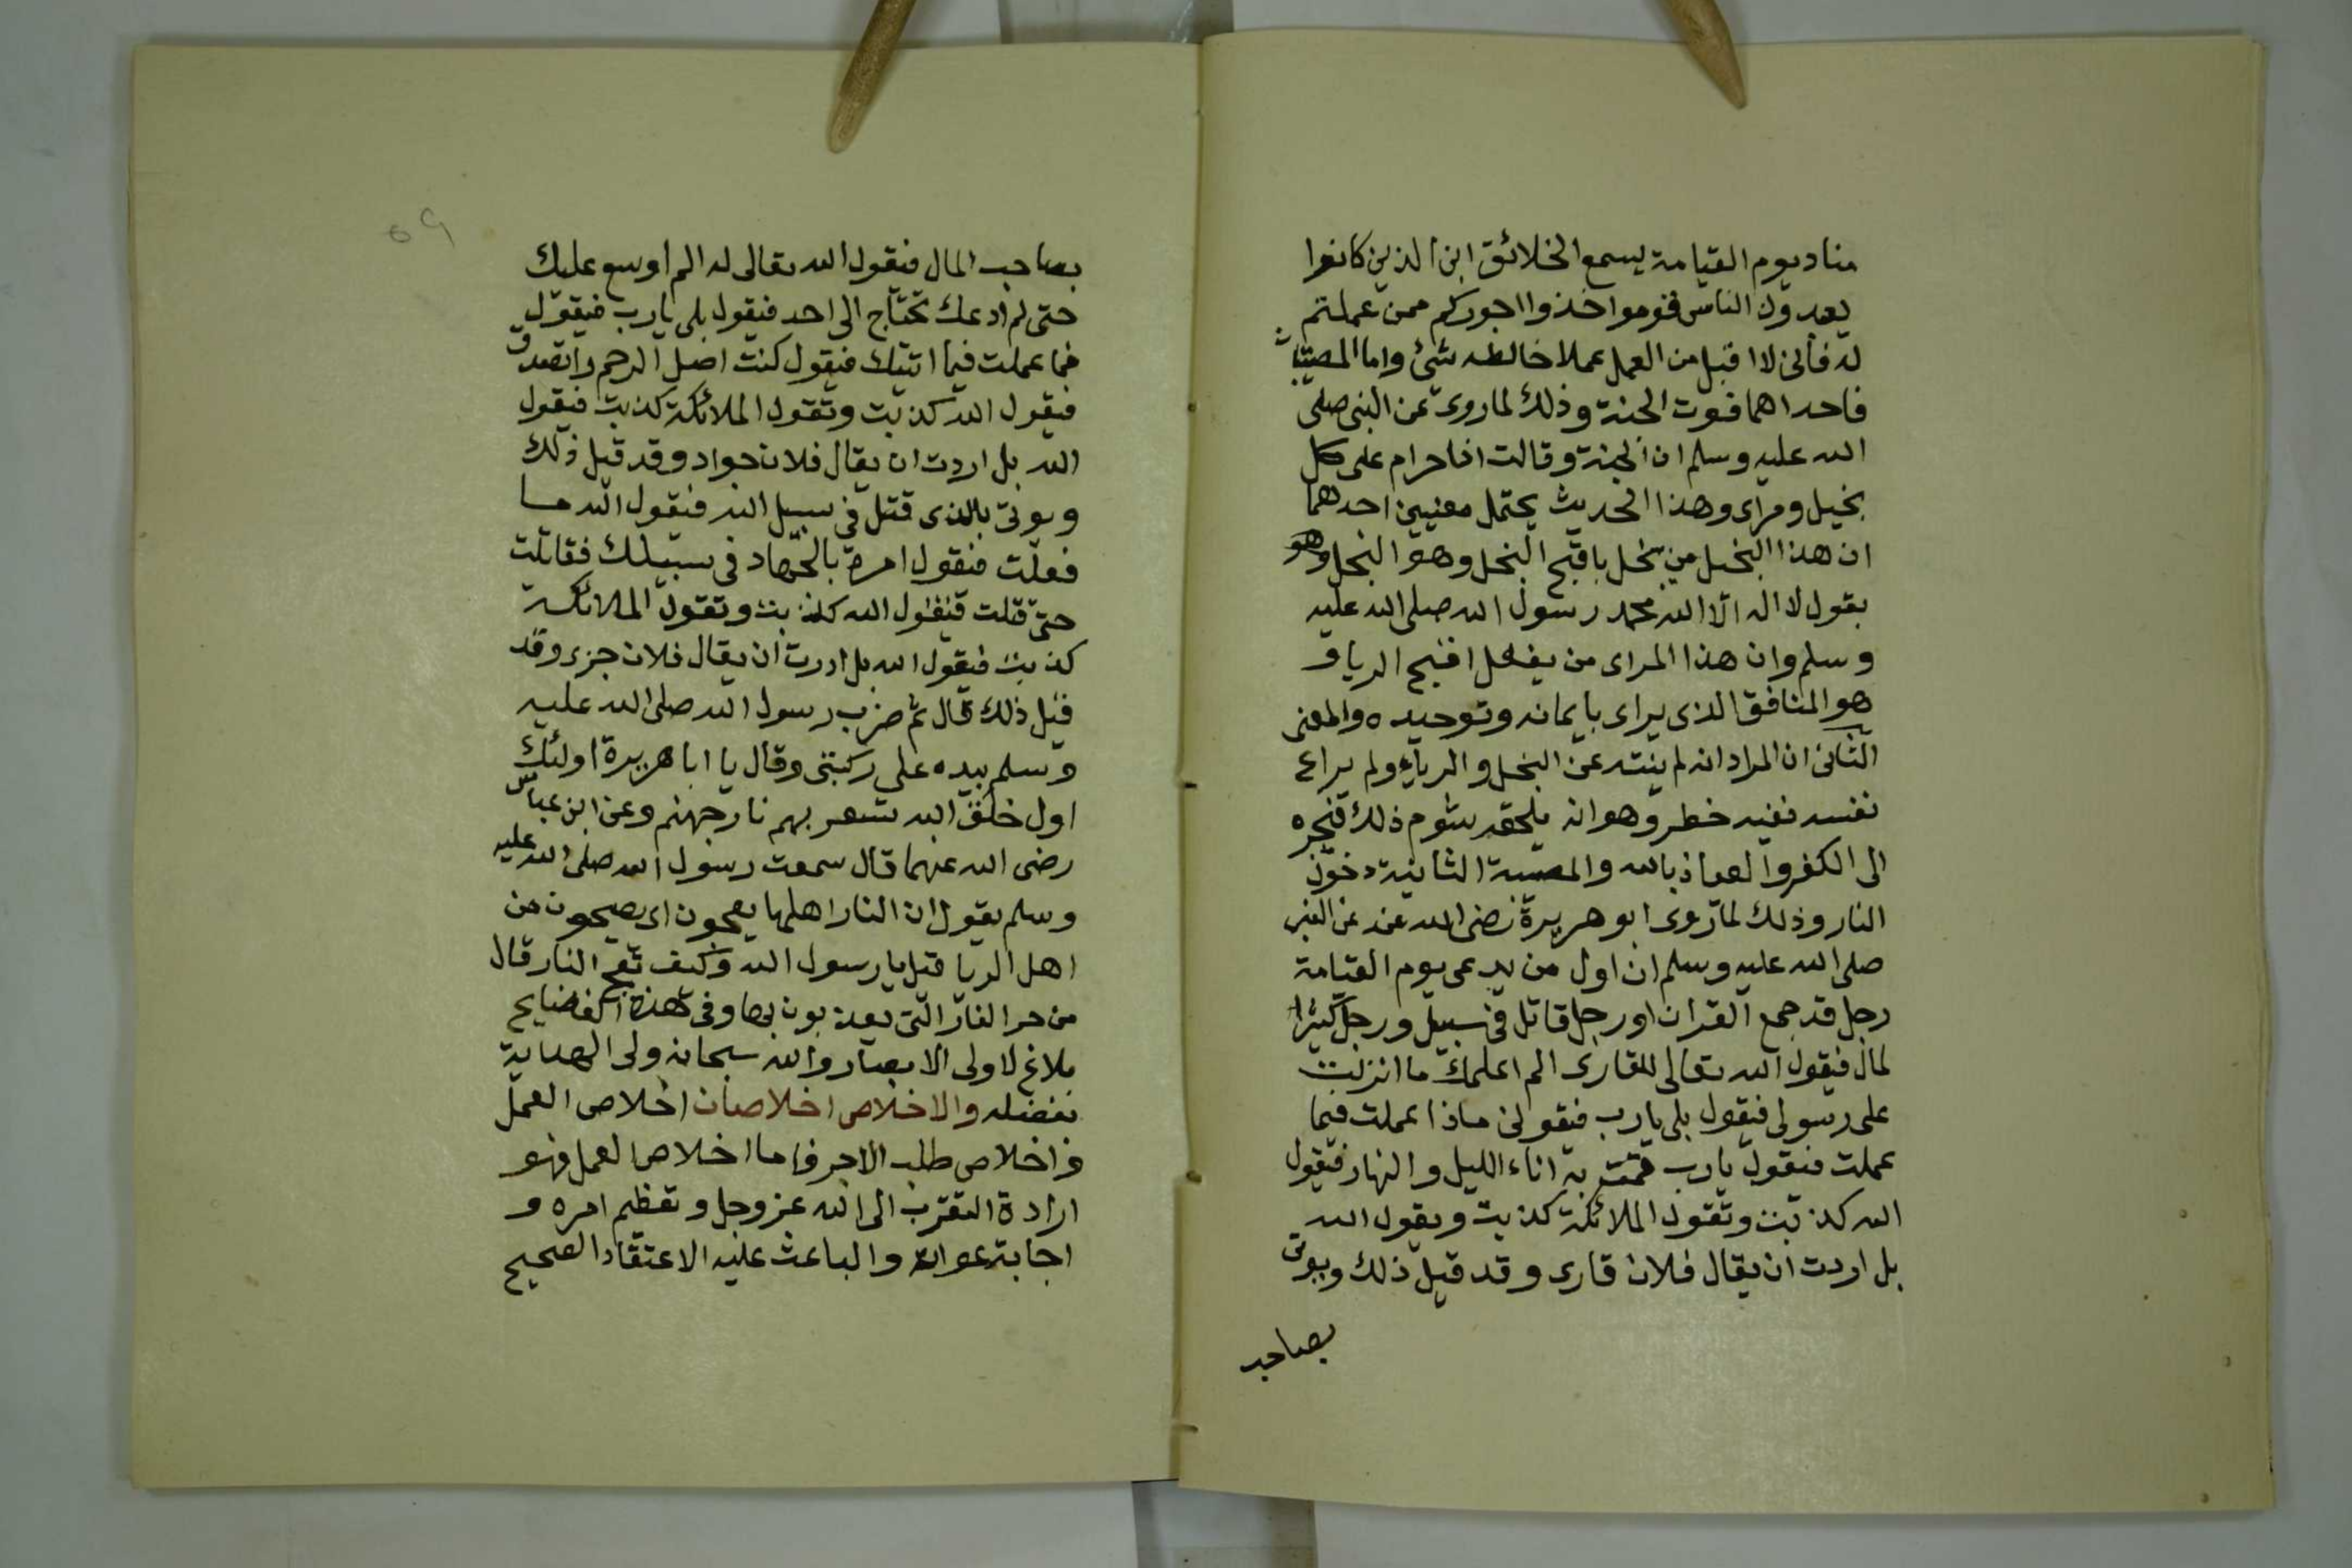 مناد يوم القيامة يسمع الخلائق اين الذين كانوا
يعبدون الناس قوموا خذوا اجوركم ممن عملتم
له فانى لا اقبل من العمل عملا خالطه شئ واما المصيبتان
فاحداهما فوت الجنة وذلك لما روى عن النبى صلى
الله عليه وسلم ان الجنة وقالت انا حرام على كل
بخيل ومراى وهذا الحديث يحتمل معنيين احدهما
ان هذا البخيل من بخل باقبح البخل وهو البخل وهو
بقول لا اله الا الله محمد رسول الله صلى الله عليه
وسلم وان هذا المراى من يفعل اقبح الريا و
هو المنافق الذى يراى بايمانه وتوحيده والمعنى
الثانى ان المراد انه لم ينته عن البخل والرياء ولم يراع
نفسه ففيه خطر وهو انه يلحقه شوم ذلك فيجره
الى الكفر والعياذ بالله والمصيبة الثانية دخول
النار وذلك لما روى ابو هريرة رضى الله عنه عن النبى
صلى الله عليه وسلم ان اول من يدعى يوم القيامة
رجل قد جمع القران اورجل قاتل فى سبيل ورجل كثير
لمال فيقول الله تعالى للقارى الم اعلمك ما انزلت
على رسولى فيقول بلى يارب فيقول ماذا عملت فيما
عملت فيقول يارب قمت به اناء الليل والنهار فيقول
الله كذبت وتقول الملائكة كذبت ويقول الله
بل اردت ان يقال فلان قارى وقد قيل ذلك ويوتى
بصاحب
٥٩
بصاحب المال فيقول الله تعالى له الم اوسع عليك
حتى لم ادعك تحتاج الى احد فيقول بلى يارب فيقول
فما عملت فيما اتيتك فيقول كنت اصل الرحم واتصدق
فيقول الله كذبت وتقول الملائكة كذبت فيقول
الله بل اردت ان يقال فلان جواد وقد قيل ذلك
ويوتى بالذى قتل فى سبيل الله فيقول الله ما
فعلت فيقول امرت بالجهاد فى سبيلك فقاتلت
حتى قتلت فيقول الله كذبت وتقول الملائكة
كذبت فيقول الله بل اردت ان يقال فلان جرى وقد
قيل ذلك قال ثم ضرب رسول الله صلى الله عليه
وسلم بيده على ركبتى وقال يا ابا هريرة اولئك
اول خلق الله تسعر بهم نار جهنم وعن ابن عباس
رضى الله عنهما قال سمعت رسول الله صلى الله عليه
وسلم يقول ان النار اهلها يعجون اى يصيحون من
اهل الريا قيل يا رسول الله وكيف تعج النار قال
من حر النار التى يعذبون بها وفى هذه الفضايح
بلاغ لاولى الابصار والله سبحانه ولى الهداية
بفضله والاخلاص اخلاصان اخلاص العمل
واخلاص طلب الاجر فاما اخلاص العمل فهو
ارادة التقرب الى الله عز وجل وتعظيم امره و
اجابة دعوته والباعث عليه الاعتقاد الصحيح